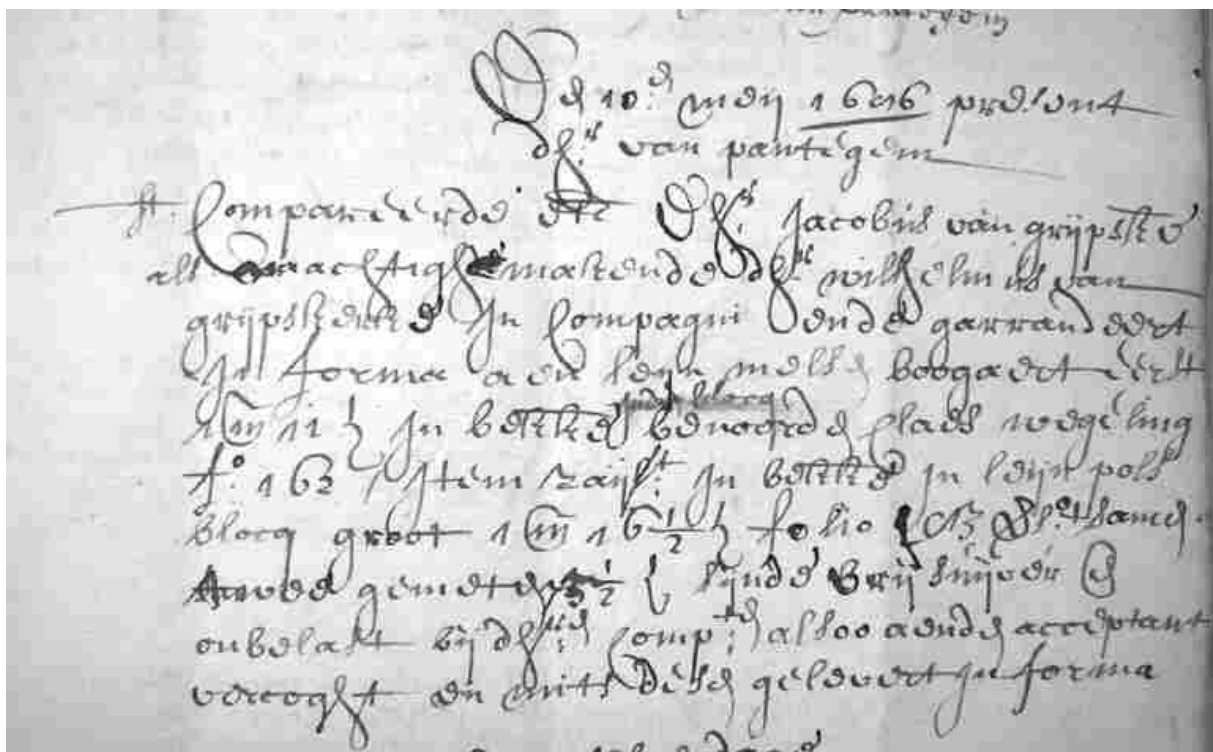 van pantegem
Den 10en meij 1696 present
dhr van pantegem
Compareerde etc Dhr Jacobus van grijpskercke
als machtigh makende dhr wilhelmus van
grijpskercke In Compagni ende garrandeert
In forma aen leijn mels boogaert eerst
In blocq
1 gem 11 r In bekkes benoorden claes wegeling
fo 162 Item raijst In bekke in leijn pols
blocq groot 1 gem 16 1/2 r folio
twee gemeten 1/2 r sijnde vrij suijver en
onbelast bij dhr Compt alsoo aenden acceptant
vercoght en mits desen gelevert In forma